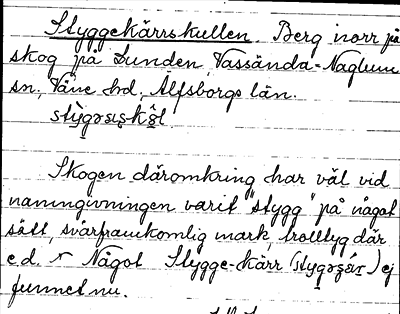 Styggekärrskullen. Berg norr på
skog på Lunden, Vassända-Naglum
sn., Väne hd, Älfsborgs län.
Skogen däromkring har väl vid
namngivningen varit "stygg" på något
sätt, svårframkomlig mark, trolltyg där
e.d. Något Stygge-kärr ej
funnet nu.